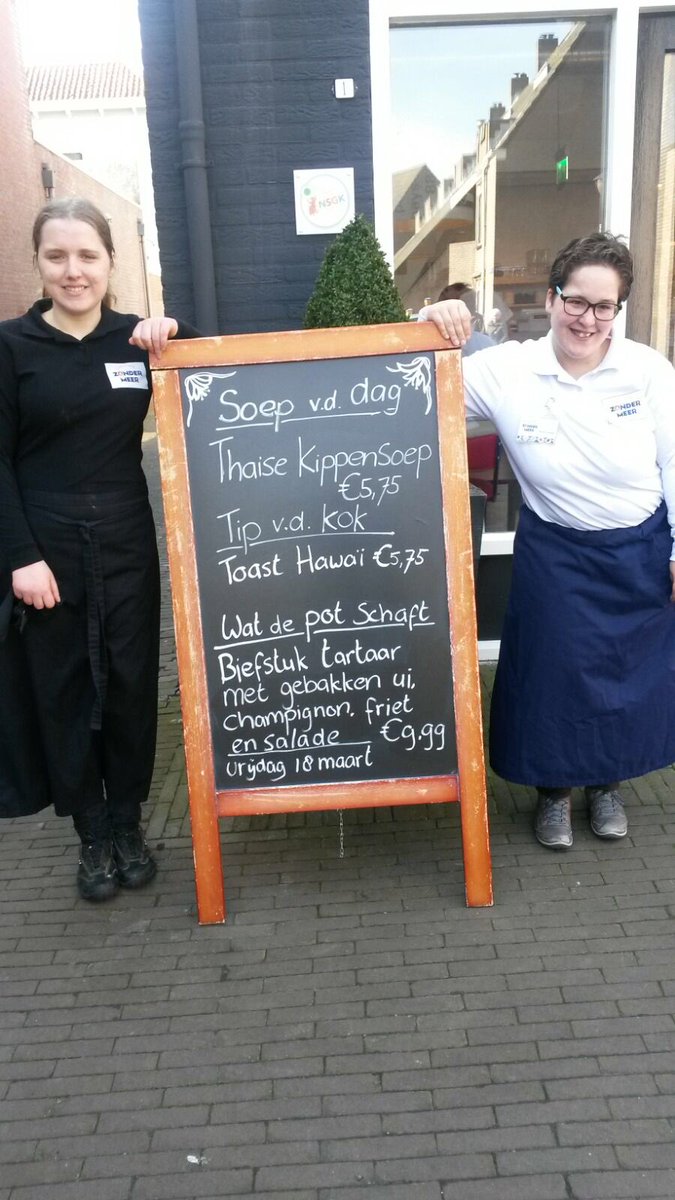 1
NSGK
ZONDER
MEER
ZONDER
MEER
Soep v.d. dag
Thaise Kippensoep
€5,75
Tip v.d. kok
Toast Hawaï €5,75
Wat de pot schaft
Biefstuk tartaar
met gebakken ui,
champignon, friet
en salade €9,99
vrijdag 18 maart